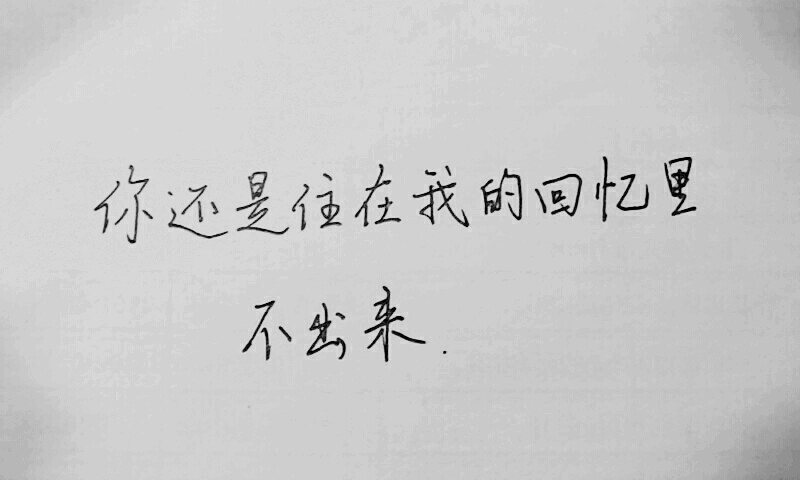 你还是住在我的回忆里
不出来.